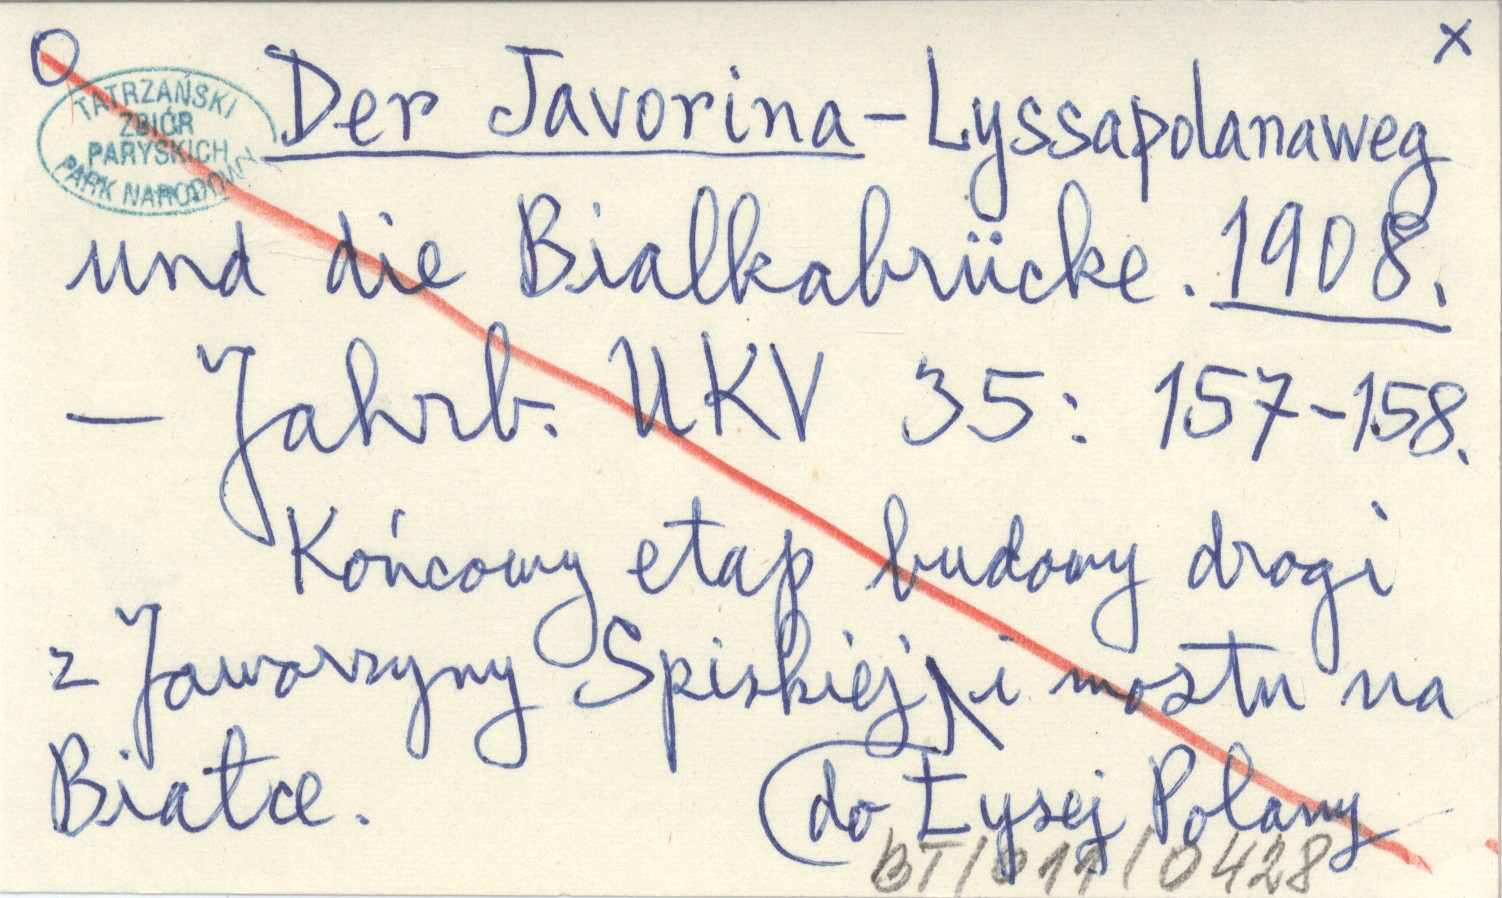 O
x
TATRZAŃSKI
ZBIÓR
PARYSKICH
PARK NARODOWY
Der Javorina-Lyssapolanaweg
und die Bialkabrücke. 1908.
— Jahrb. UKV 35: 157-158.
Końcowy etap budowy drogi
z Jaworzyny Spiskiej i mostu na
Białce.
do Łysej Polany
BT/011/0428